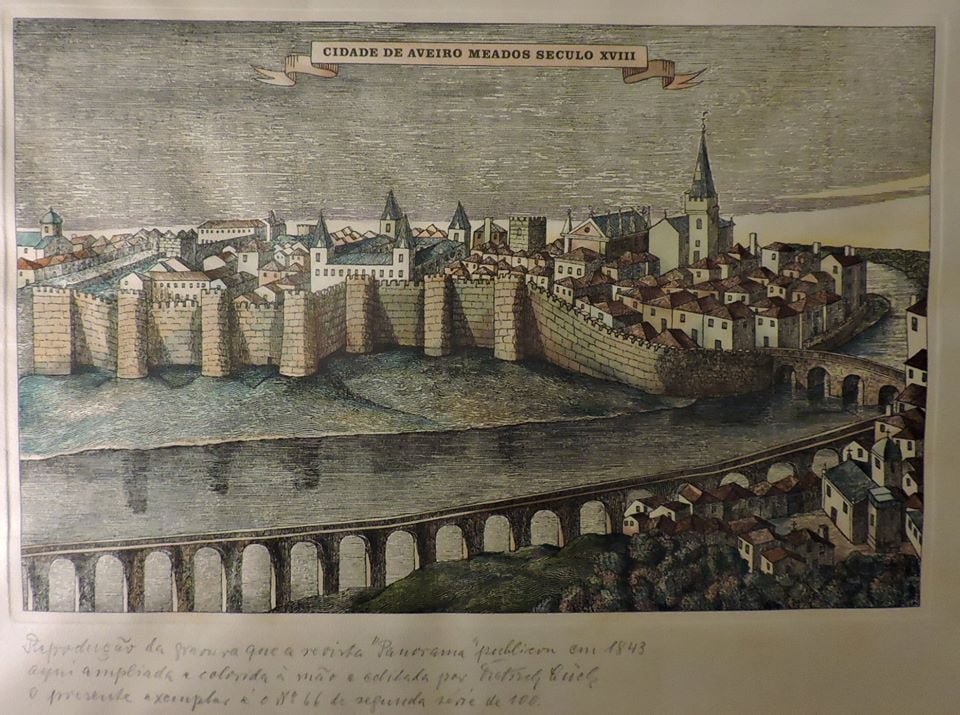 CIDADE DE AVEIRO MEADOS SECULO XVIII
Reprodução da gravura que a revista "Panorama" publicou em 1843
aqui ampliada e colorida à mão e editada por
o presente exemplar é o Nº 66 de segunda série de 100.